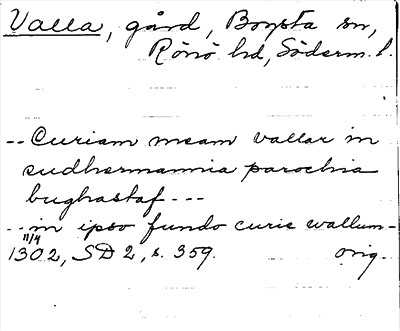 Valla, gård, Bogsta sn,
Rönö hd, Söderm. l.
-- Curiam meam vallar in
sudhermannia parochia
bughastaf ---
-- in ipso fundo curie wallum-
11/4
1302, SD 2, s. 359. orig.